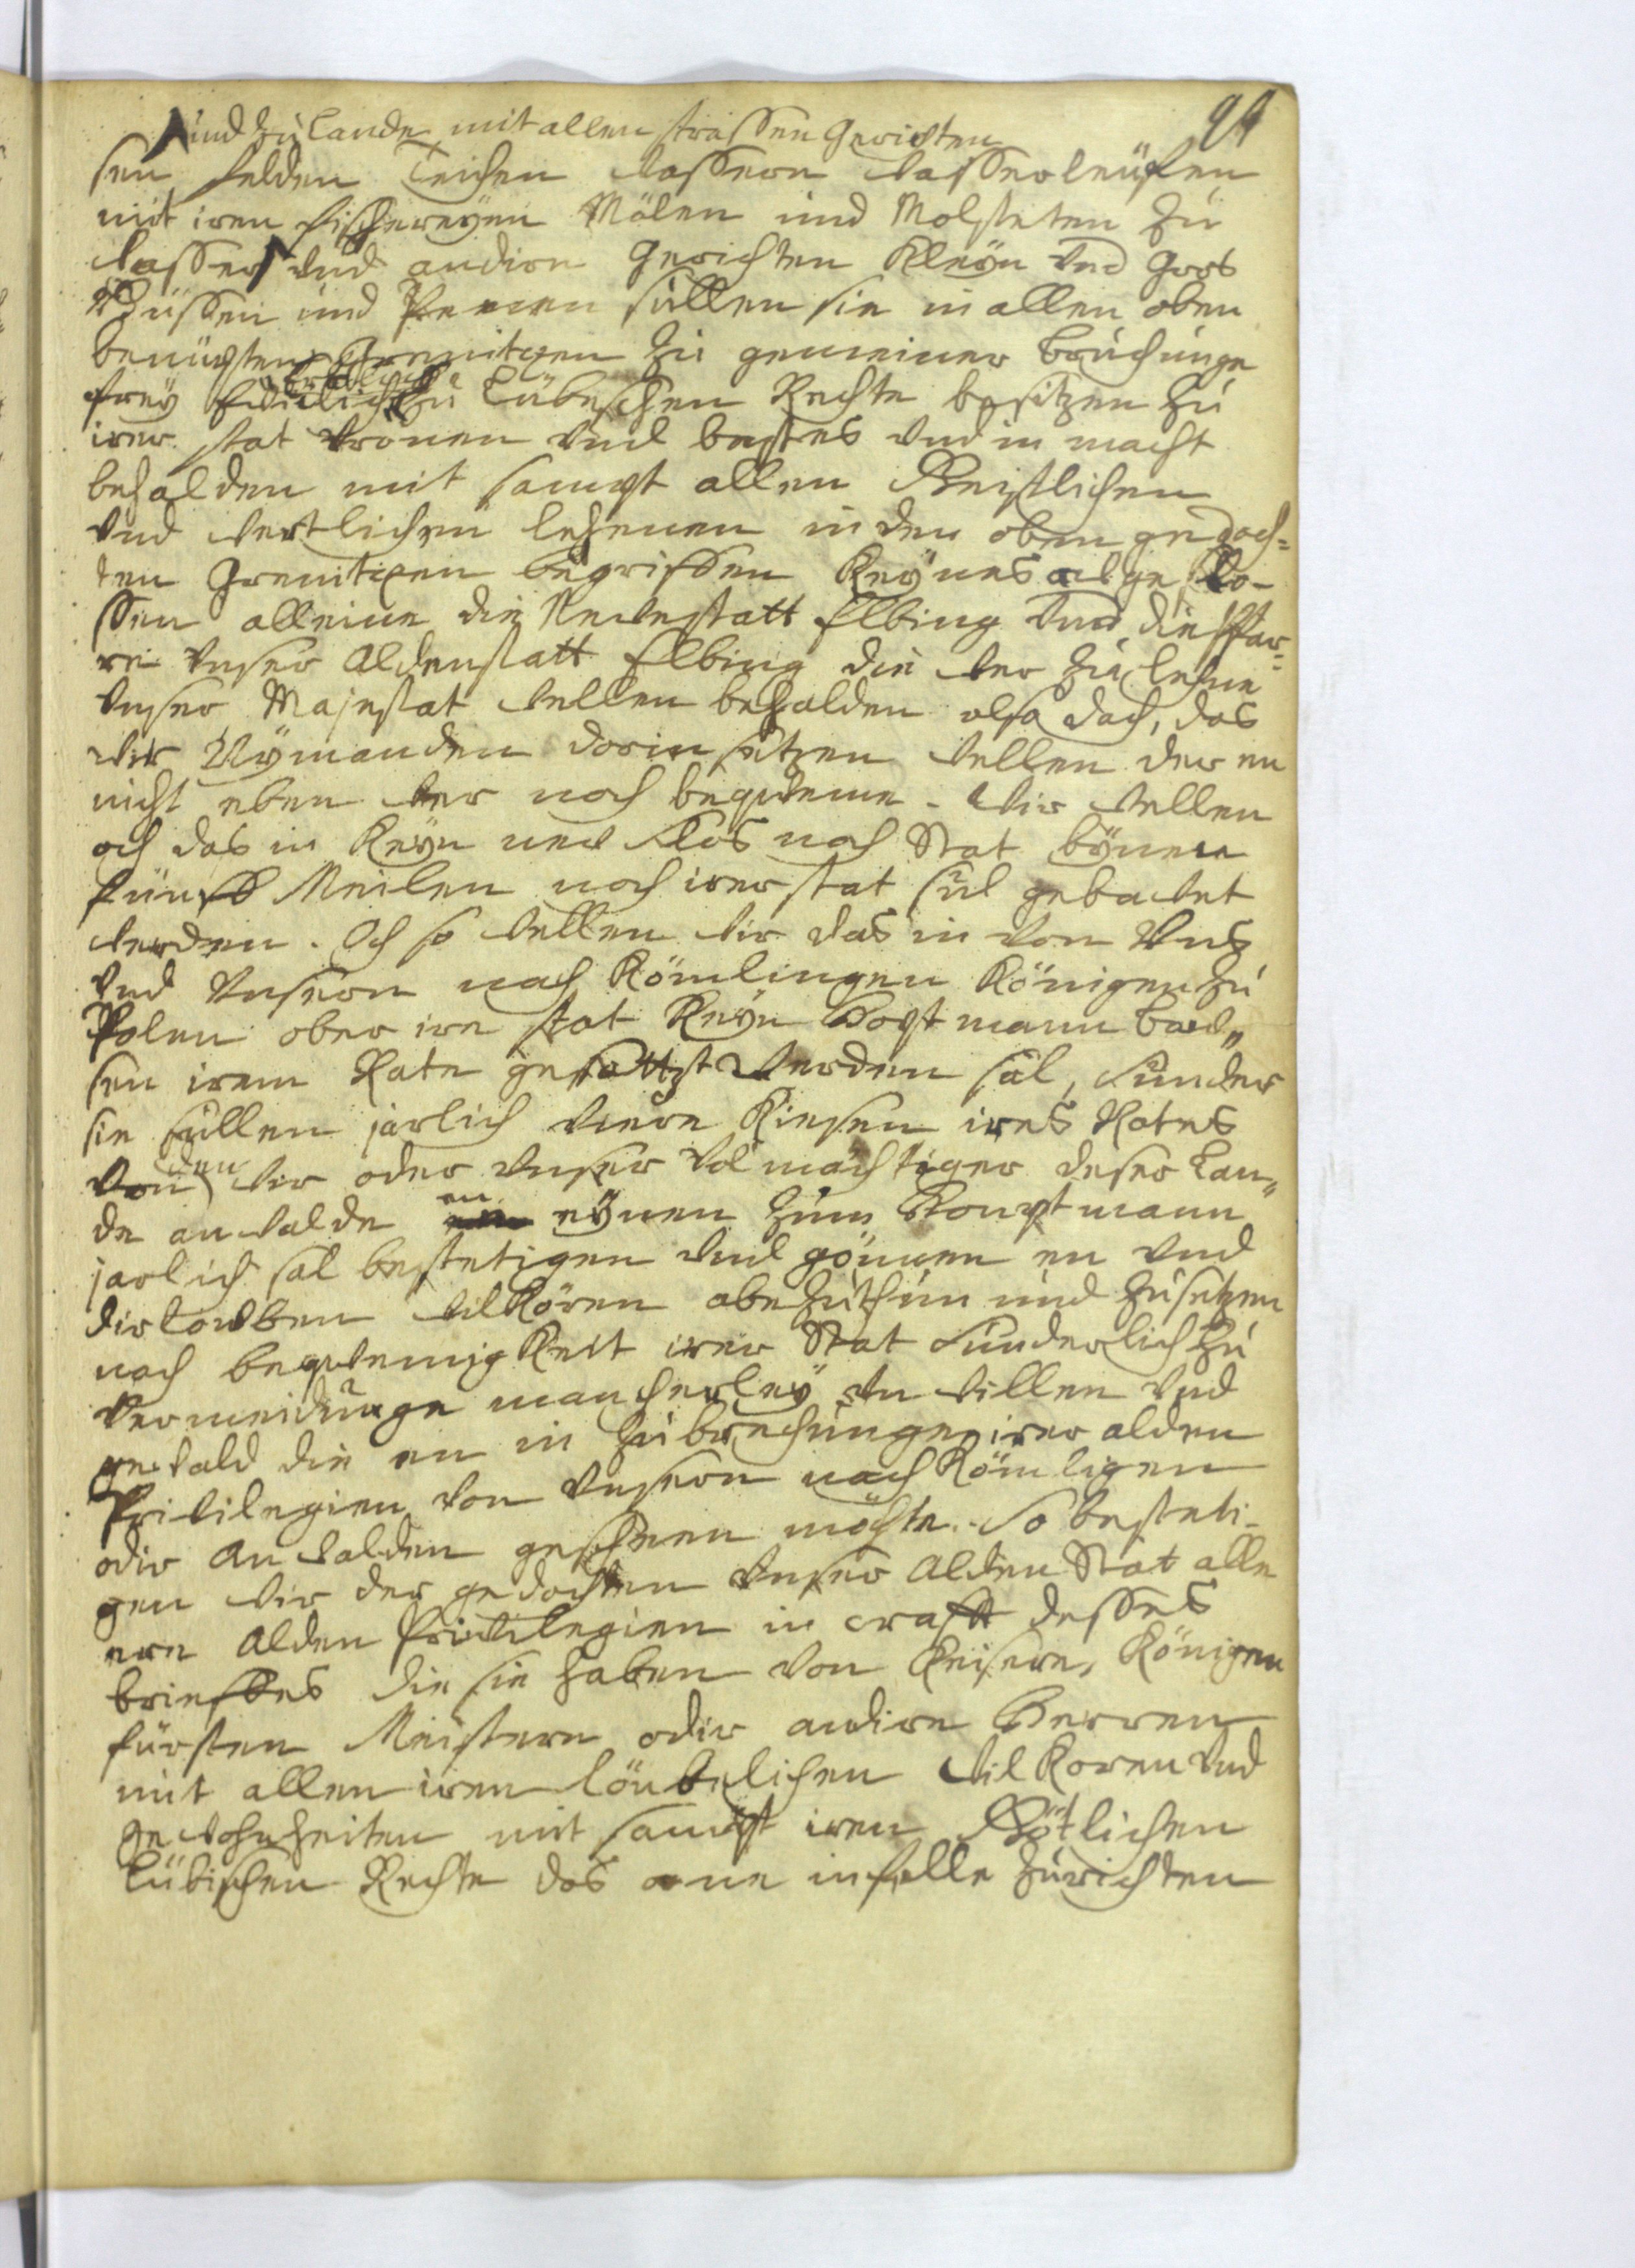 99
und zu Lande mit allen strassen Gerichten
sen felden Teichen Wassern Wasserleuften
mit iren fischereyen Mölen und Molsteten zu
Wasser und andirn Gerichten Kleyn vnd Gros
Bussen und Penen sullen sie in allen oben
benumpten Grenitzen zu gemeiner Bruchunge
frey zu Lübeschen Rechte besitzen zu
irer stat vromen vnd bestes vnd in macht
behalden mit sampt allen Geistlichen
vnd Wertlichen lehenen in den oben gedoch-
ten Grenitzen begriffen Keynes uszgeslo-
ssen alleine die Newestatt Elbing vnd die Pfar-
re vnser Aldenstatt Elbing die wer zu lehne
vnser Majestat wellen behalden also doch, das
wir Nymanden dorin setzen wellen der en
nicht eben wer noch bequeme. Wir wellen
och das in Keyn new Slos noch Stat bynnen
fünff Meilen noch irer stat sul gebawet
werden. Och so wellen wir das in von Vns
vnd Vnsern noch Kömlingen Königen zu
Polen ober ire stat Keyn Hoptmann baws-
sen irem Rate gesattzt werden sal, sunder
sie sullen jarlich viere Kiesen ires Rotes
den wir oder vnser vol mächtiger deser Lan-
de anwalde en eynen zum Houptmann
jarlich sal bestetigen vnd gönnen en vnd
dirlowben wilkören abezuthun und zusetzen
noch bequemigkeit irer Stat sunderlich zu
vermeidunge mancherley vnwillen vnd
gewald die en in zubrechunge irer alden
Privilegien von vnsern noch Kömligen
odir Anwalden geschen möchte. So besteti-
gen wir der gedochten vnser Alden Stat alle
ere alden Privilegien in crafft desses
brieffes die sie haben von Keisern, Königen
fürsten Meistern odir andirn Herren
mit allen iren löubelichen Wilkoren vnd
gewohnheiten mit sampt iren Götlichen
Lübischen Rechte das ane infelle zurichten